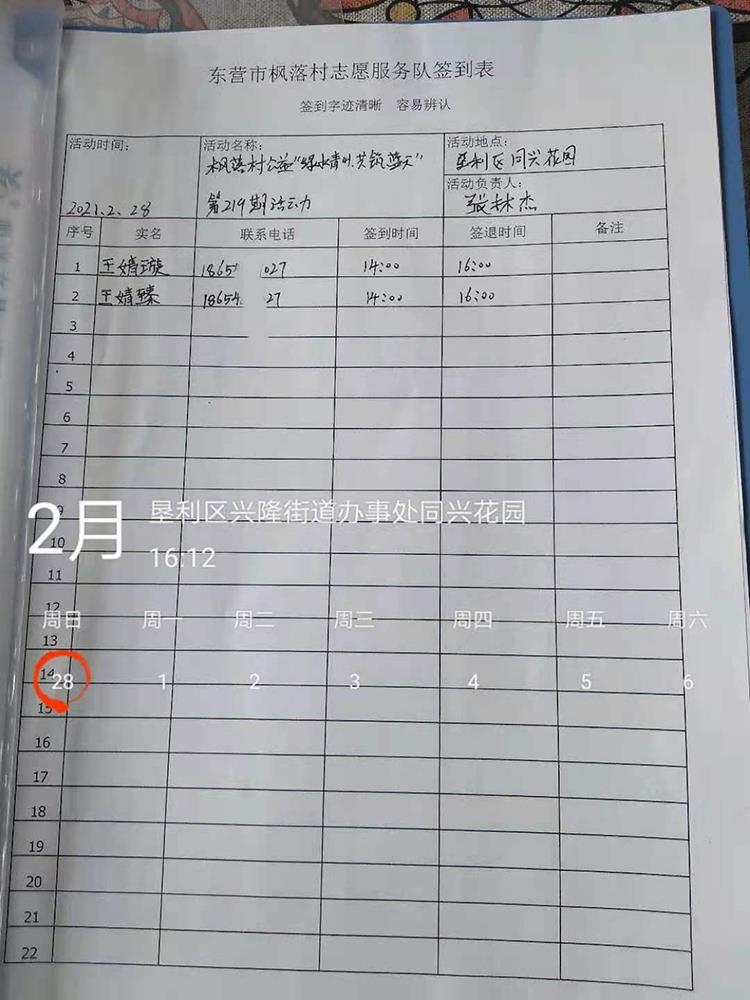 东营市枫落村志愿服务队签到表
签到字迹清晰 容易辨认
活动时间:
2021.2.28
活动名称:
枫落村公益"绿水青山.共筑蓝天"
第219期活动
活动地点:
垦利区同兴花园
活动负责人:
张林杰
序号 实名 联系电话 签到时间 签退时间 备注
1 王婧璇 1865 027 14:00 16:00
2 王婧臻 18654 27 14:00 16:00
3
4
5
6
7
8
9
2月 垦利区兴隆街道办事处同兴花园
10
16:12
11
12
周日 周一 周二 周三 周四 周五 周六
13
14
28 1 2 3 4 5 6
15
16
17
18
19
20
21
22